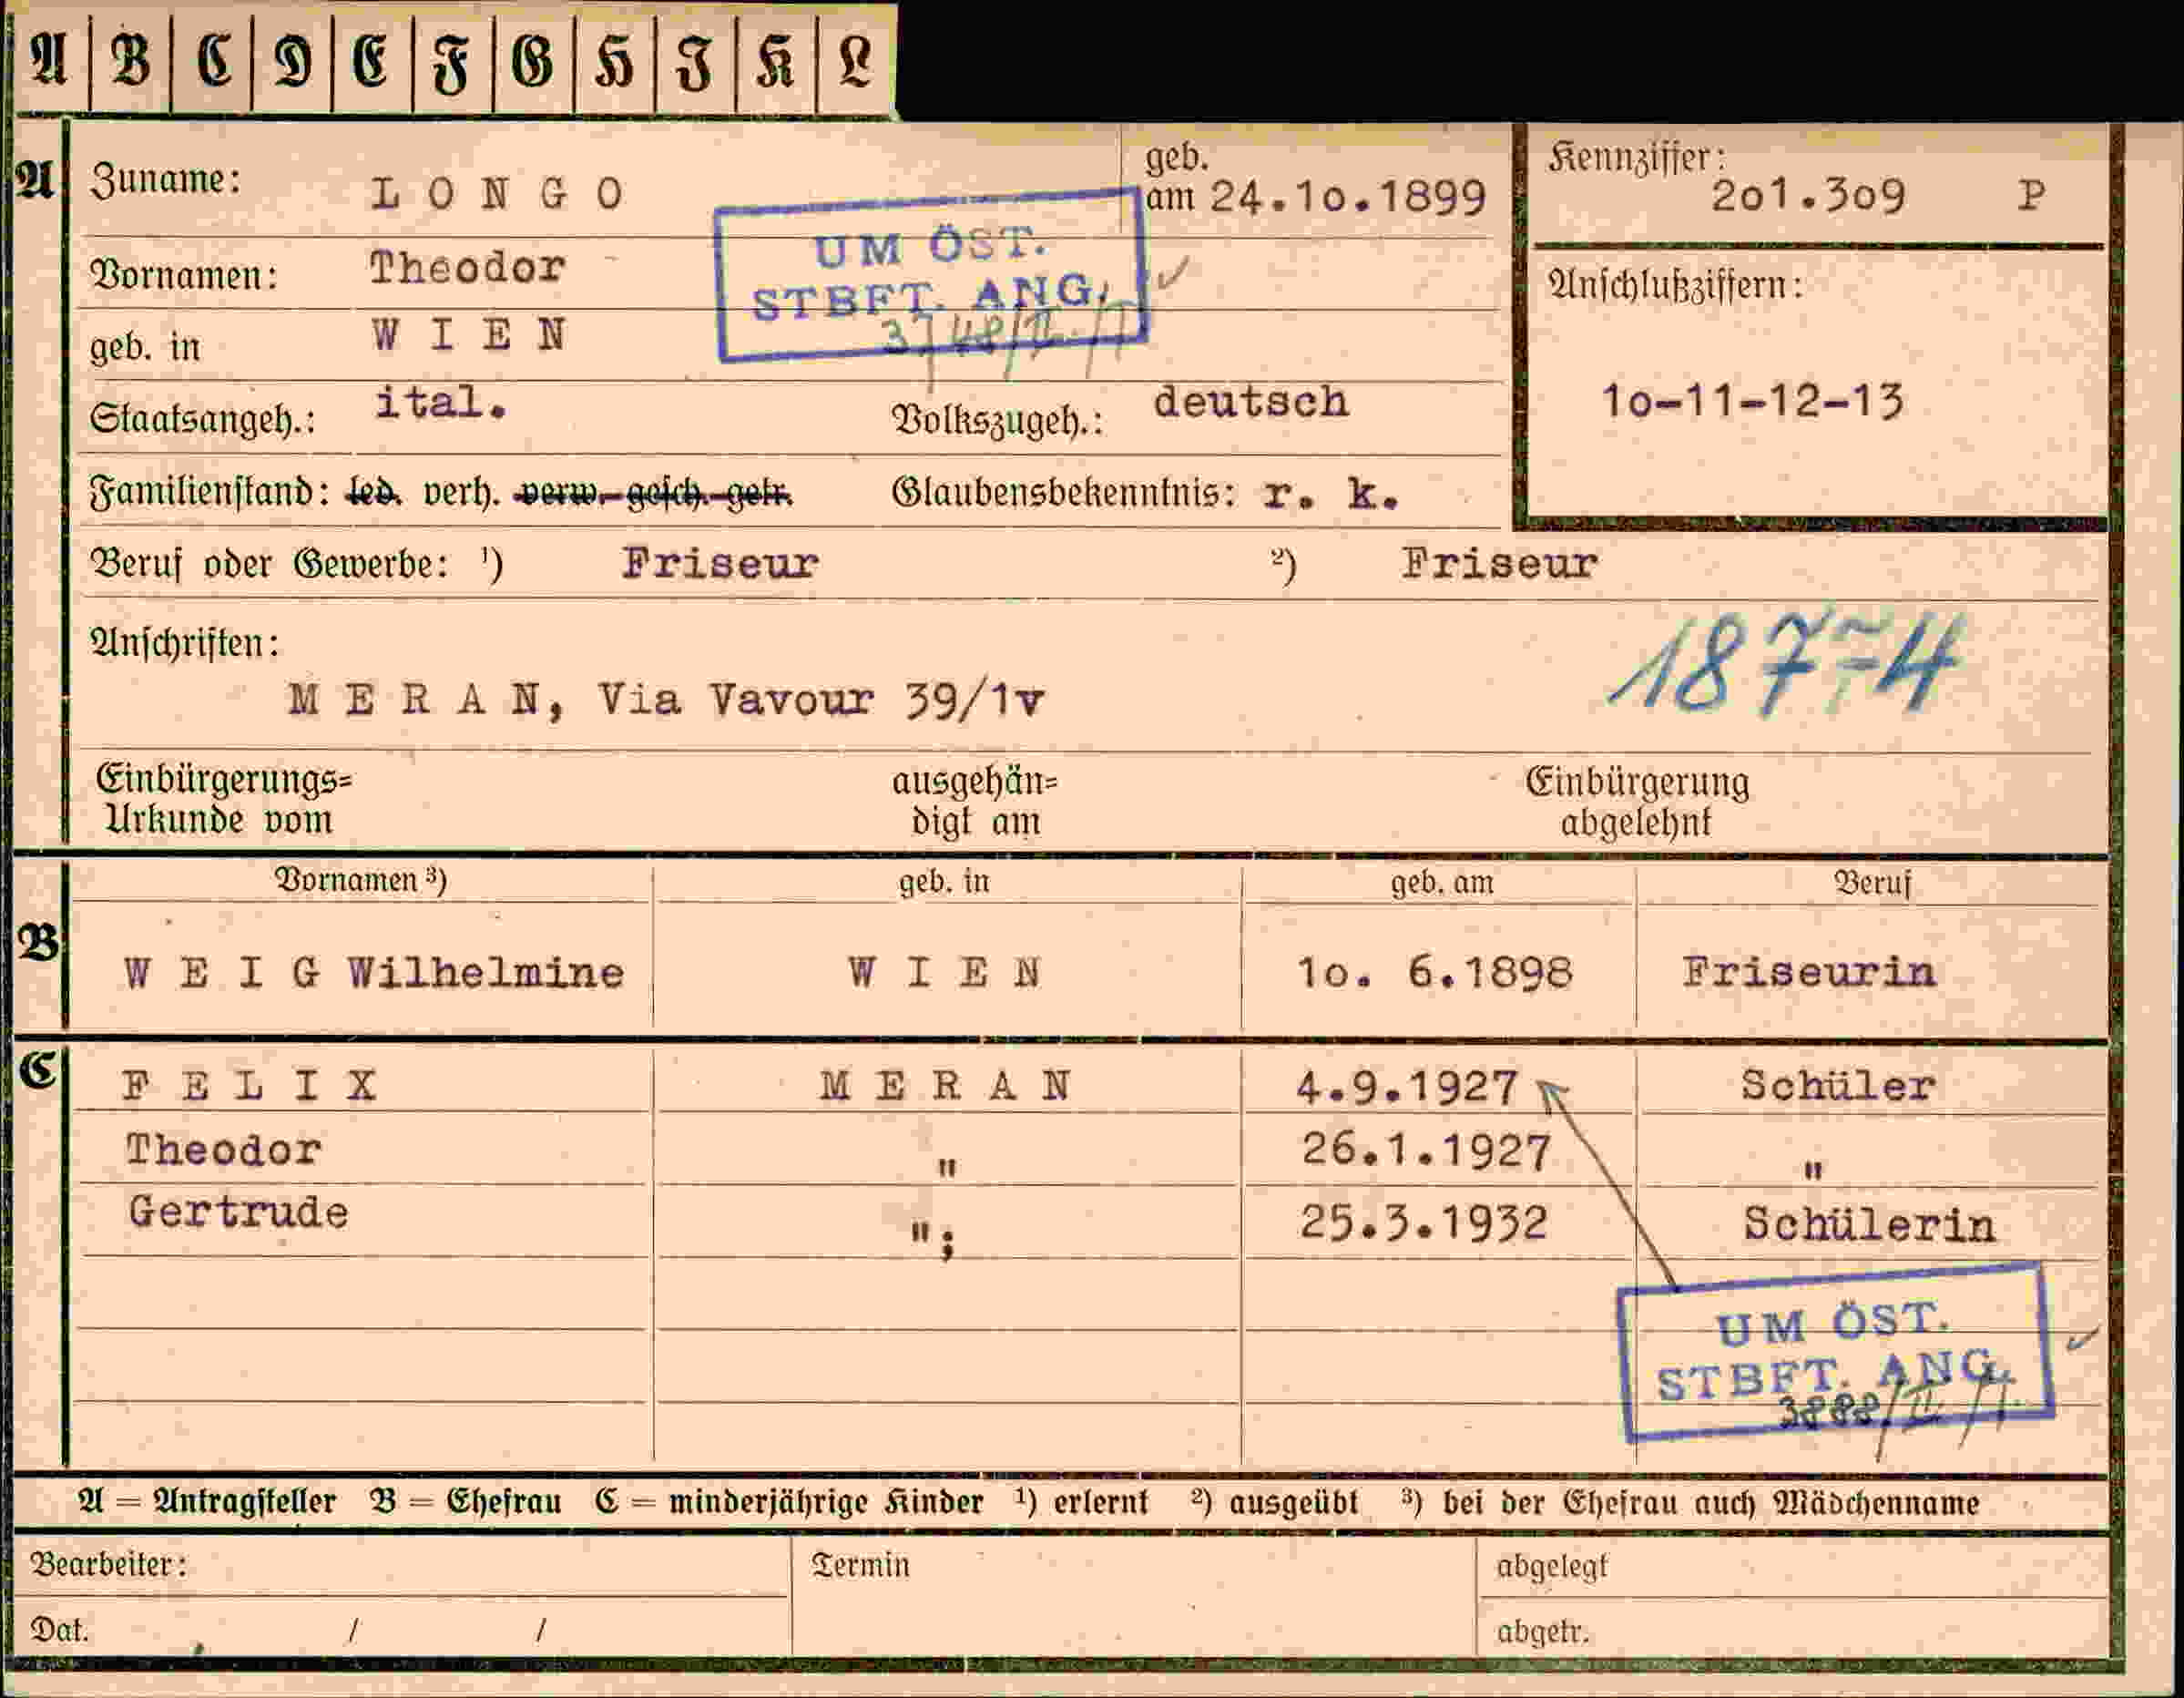 A B C D E F G H I K L
A Zuname: LONGO geb. am 24.1o.1899 Kennziffer: 2o1.3o9 P
UM ÖST.
STBFT. ANG.
Vornamen: Theodor
Anschlußziffern:
geb. in WIEN
1o-11-12-13
Staatsangeh.: ital. Volkszugeh.: deutsch
Familienstand: led. verh. verw. gesch. getr. Glaubensbekenntnis: r. k.
Beruf oder Gewerbe: ¹) Friseur ²) Friseur
Anschriften:
187 4
MERAN, Via Vavour 39/1v
Einbürgerungs= ausgehän= Einbürgerung
Urkunde vom digt am abgelehnt
Vornamen ³) geb. in geb. am Beruf
B WEIG Wilhelmine WIEN 1o. 6.1898 Friseurin
C FELIX MERAN 4.9.1927 Schüler
Theodor " 26.1.1927 "
Gertrude "; 25.3.1932 Schülerin
UM ÖST.
STBFT. ANG.
3888/II
A = Antragsteller B = Ehefrau C = minderjährige Kinder ¹) erlernt ²) ausgeübt ³) bei der Ehefrau auch Mädchenname
Bearbeiter: Termin abgelegt
Dat. / / abgetr.